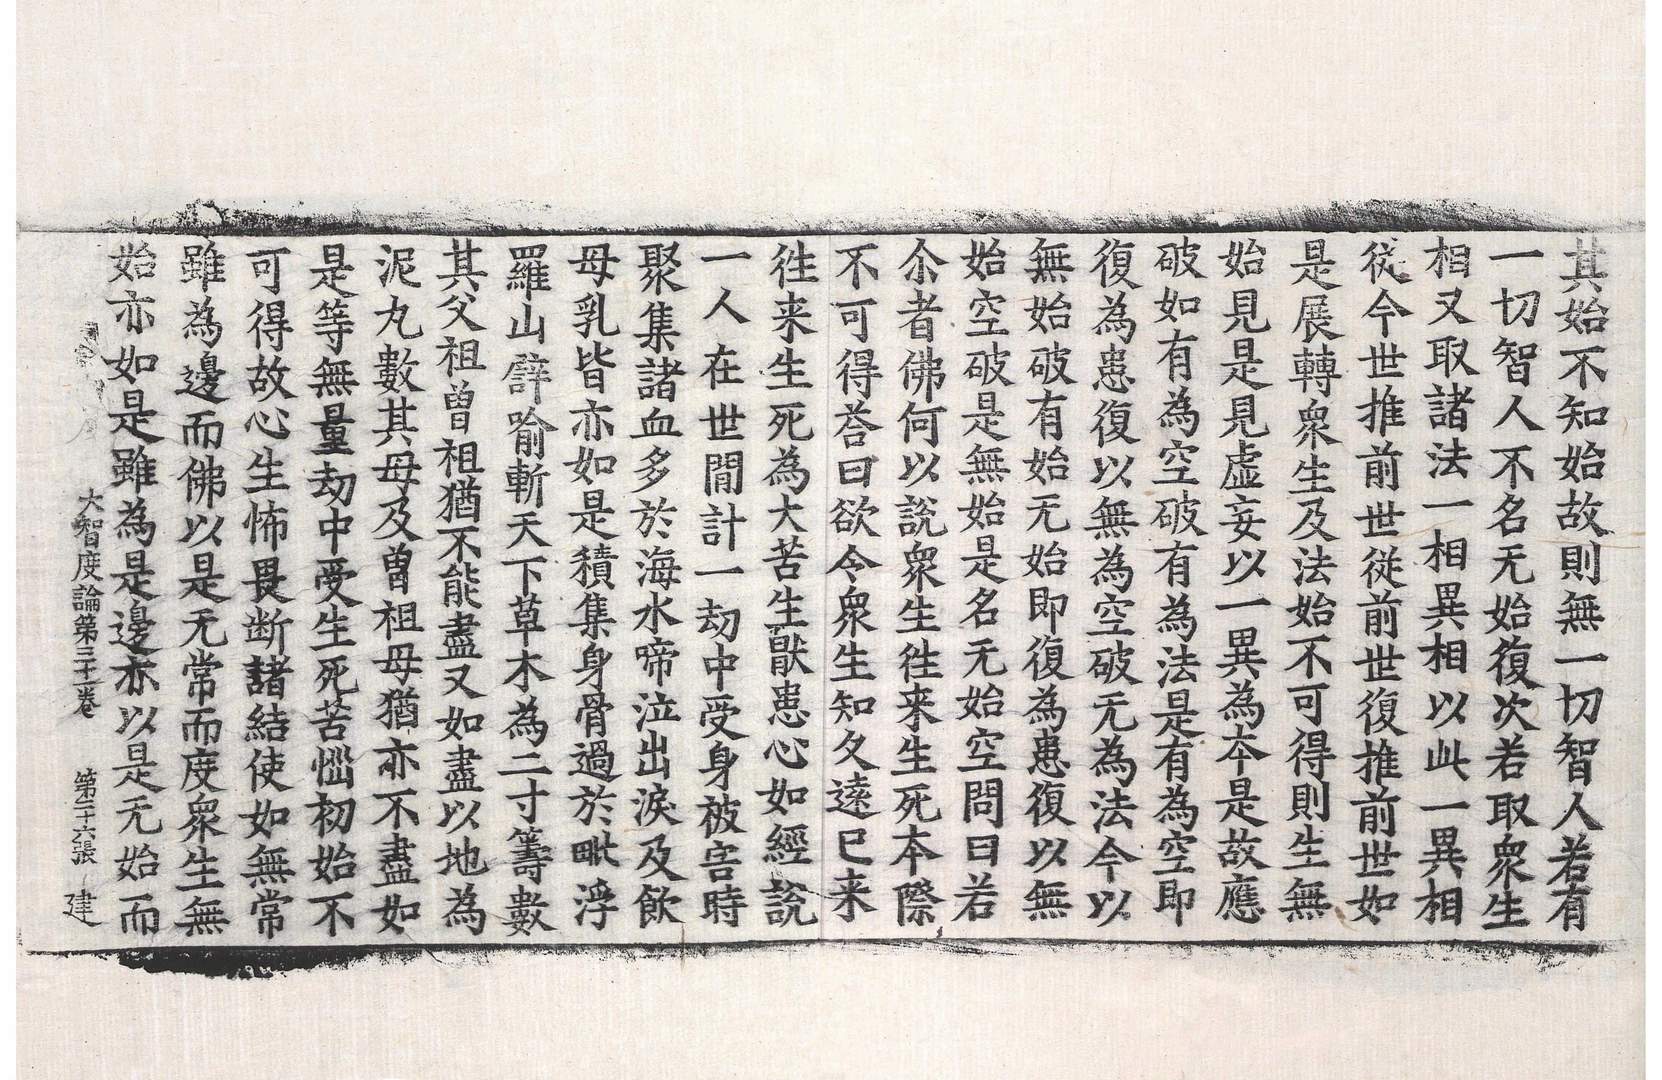 其始不知始故則無一切智人若有
一切智人不名无始復次若取衆生
相又取諸法一相異相以此一異相
從今世推前世從前世復推前世如
是展轉衆生及法始不可得則生無
始見是見虛妄以一異為本是故應
破如有為空破有為法是有為空即
復為患復以無為空破无為法今以
無始破有始无始即復為患復以無
始空破是無始是名无始空問曰若
尒者佛何以說衆生往来生死本際
不可得荅曰欲令衆生知久遠已来
往来生死為大苦生猒患心如經說
一人在世間計一劫中受身被害時
聚集諸血多於海水啼泣出淚及飲
母乳皆亦如是積集身骨過於毗浮
羅山譬喻斬天下草木為二寸籌數
其父祖曾祖猶不能盡又如盡以地為
泥丸數其母及曾祖母猶亦不盡如
是等無量劫中受生死苦惱初始不
可得故心生怖畏断諸結使如無常
雖為邊而佛以是无常而度衆生無
始亦如是雖為是邊亦以是无始而
大智度論第三十一卷　第二十六張　建